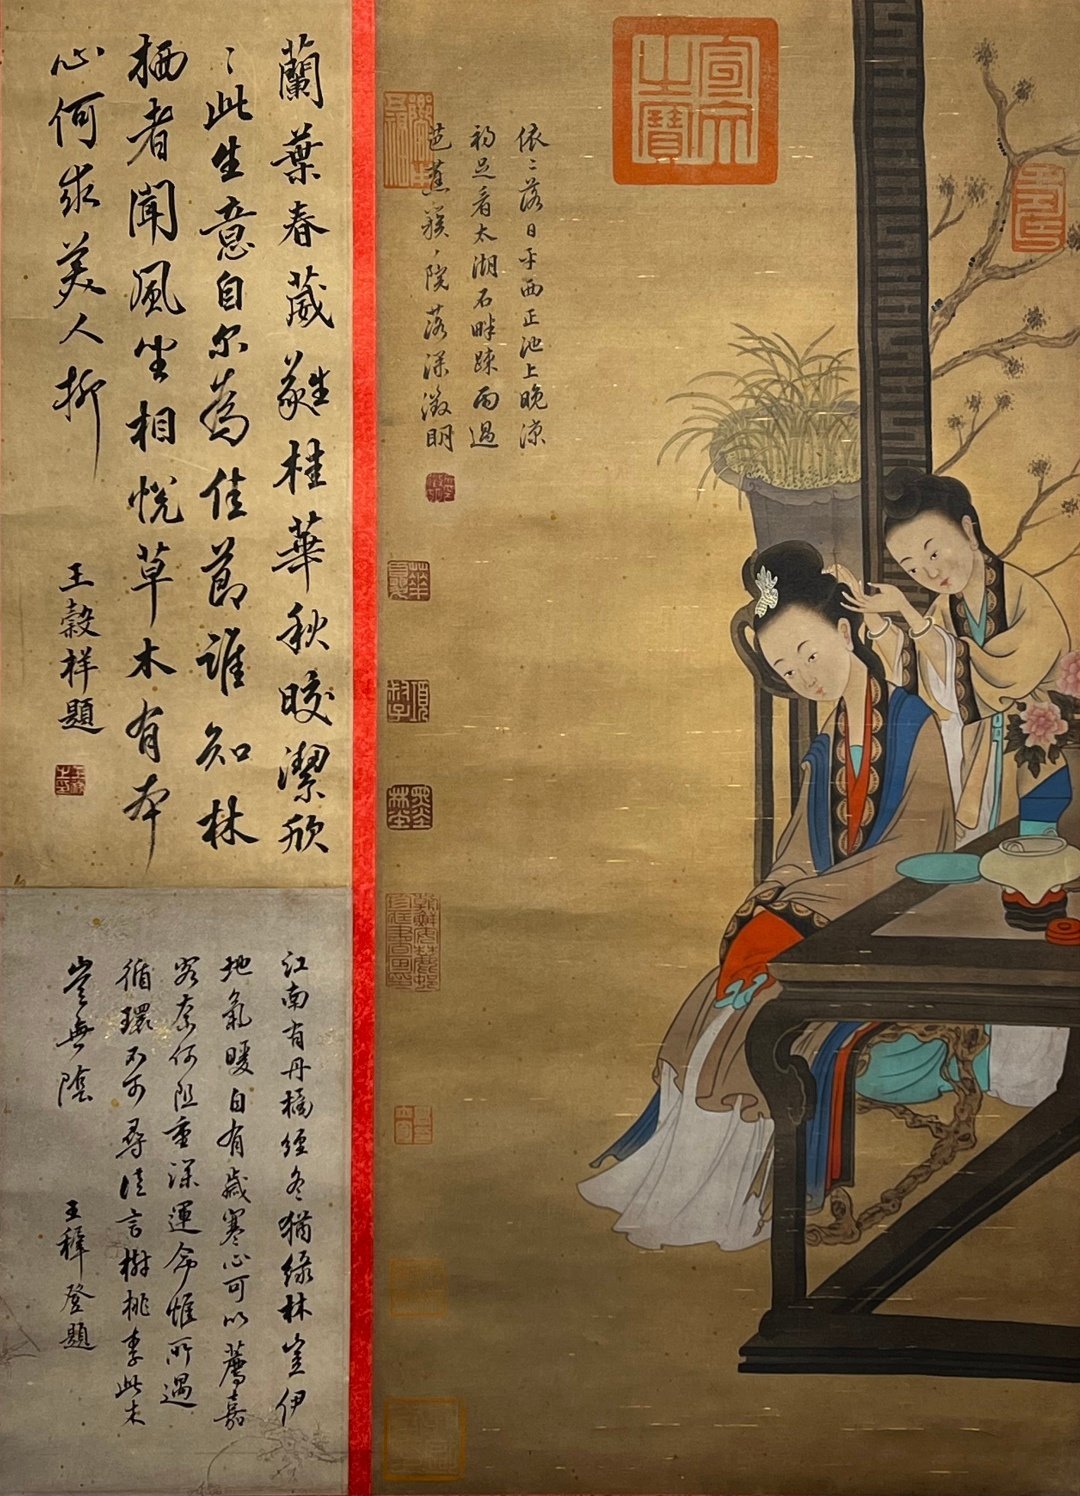 宣文之寶
依〻落日平西正池上晚涼
初足看太湖石畔疎雨過
芭蕉簇〻院落深徵明
蘭葉春葳蕤桂華秋晈潔欣
〻此生意自尔為佳節誰知林
栖者聞風坐相悅草木有本
心何求美人折
王榖祥題
江南有丹橘經冬猶綠林豈伊
地氣暖自有歲寒心可以薦嘉
客奈何阻重深運命惟所遇
循環不可尋徒言樹桃李此木
豈無陰
王穉登題